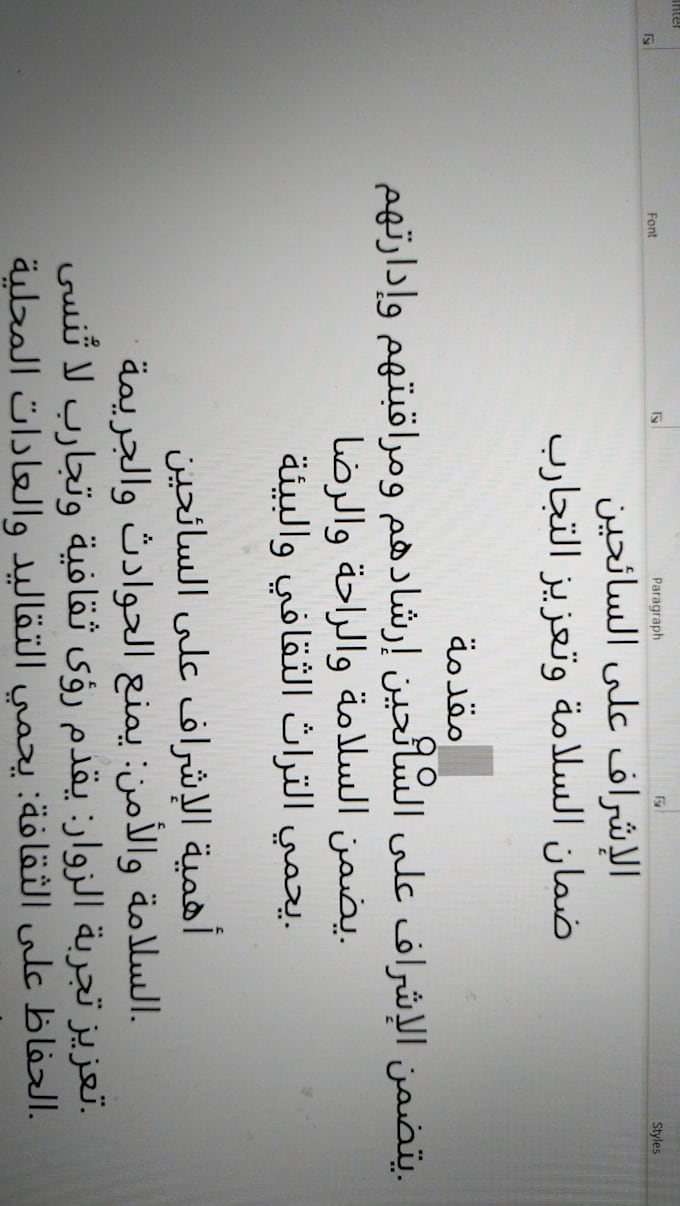 nter
Font
Paragraph
Styles
الإشراف على السائحين
ضمان السلامة وتعزيز التجارب
مقدمة
يتضمن الإشراف على السائحين إرشادهم ومراقبتهم وإدارتهم.
يضمن السلامة والراحة والرضا.
يحمي التراث الثقافي والبيئة.
أهمية الإشراف على السائحين
السلامة والأمن: يمنع الحوادث والجريمة.
تعزيز تجربة الزوار: يقدم رؤى ثقافية وتجارب لا تُنسى.
الحفاظ على الثقافة: يحمي التقاليد والعادات المحلية.